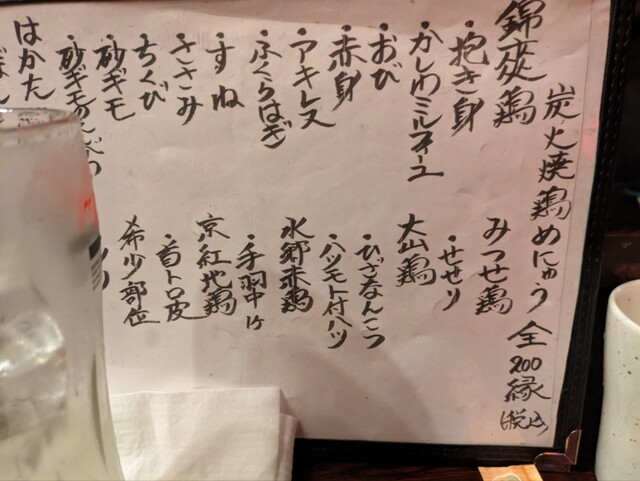 炭火焼鶏めにゅう 全200縁(税込)
錦爽鶏
・抱き身
・かしわミルフィーユ
・おび
・赤身
・アキレス
・ふくらはぎ
・すね
・ささみ
・ちくび
・砂ギモ
・砂ギモの
はかた
みつせ鶏
・せせり
大山鶏
・ひざなんこつ
・ハツモト付ハツ
水郷赤鶏
・手羽中
京紅地鶏
・首トロ皮
希少部位